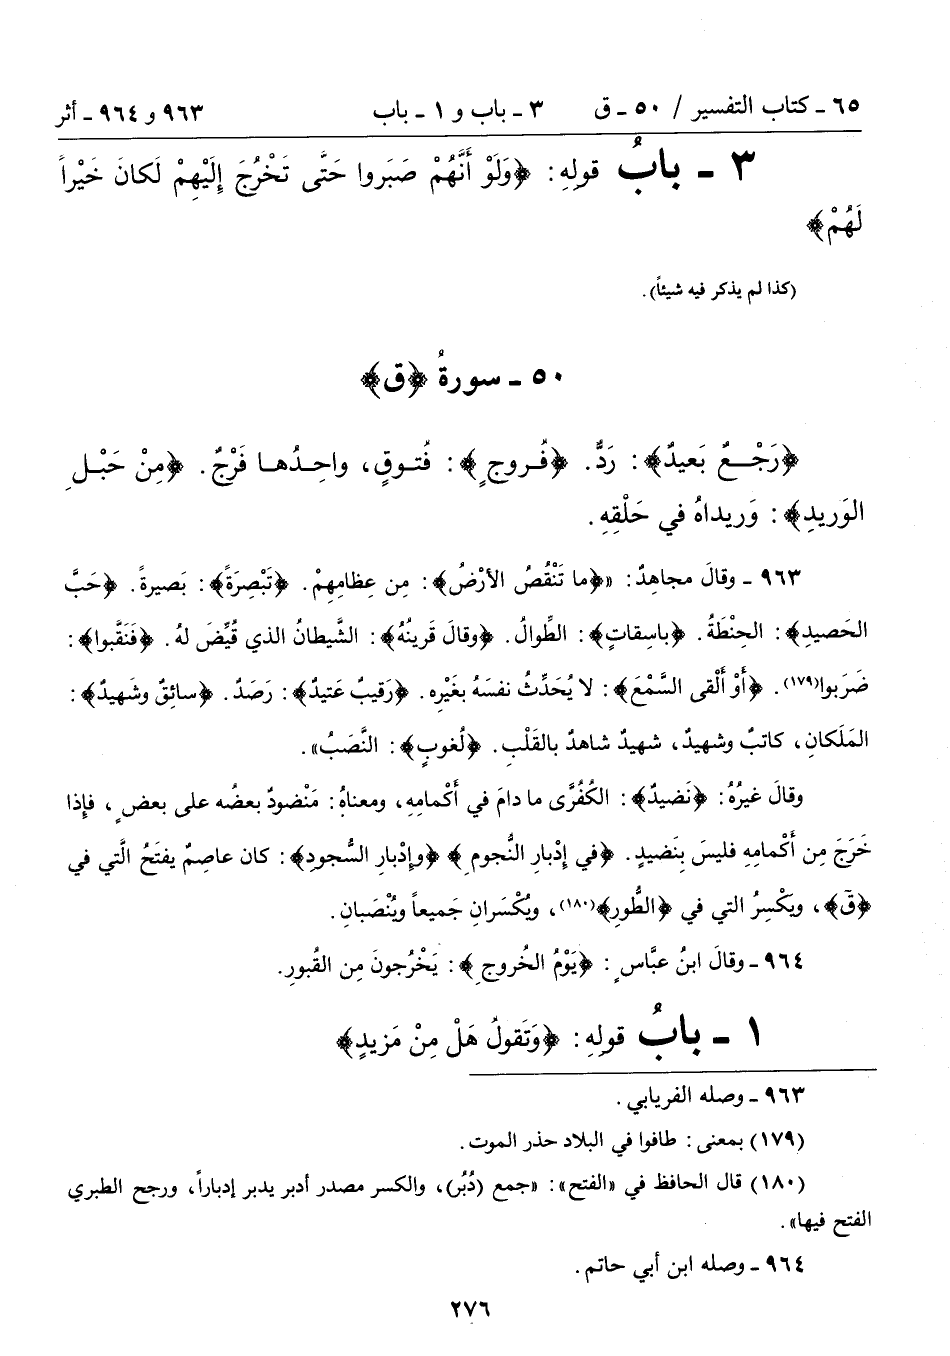 ٦٥ ـ كتاب التفسير / ٥٠ ـ ق ٣ ـ باب و ١ ـ باب ٩٦٣ و ٩٦٤ ـ أثر
٣ ـ بابُ قولِهِ: ﴿وَلَوْ أَنَّهُمْ صَبَروا حَتَّى تَخْرُجَ إِلَيْهِمْ لَكانَ خَيْراً
لَهُمْ﴾
(كذا لم يذكر فيه شيئاً).
٥٠ ـ سورةُ ﴿ق﴾
﴿رَجْعٌ بَعيدٌ﴾: رَدٌّ. ﴿فُروجٍ﴾: فُتوقٍ، واحِدُها فَرْجٌ. ﴿مِنْ حَبْلِ
الوَريدِ﴾: وَريداهُ في حَلْقِهِ.
٩٦٣ ـ وقالَ مجاهِدٌ: «﴿ما تَنْقُصُ الأرْضُ﴾: مِن عِظامِهِمْ. ﴿تَبْصِرَةً﴾: بَصيرةً. ﴿حَبَّ
الحَصيدِ﴾: الحِنْطَةُ. ﴿باسِقاتٍ﴾: الطِّوالُ. ﴿وقالَ قَرينُهُ﴾: الشَّيطانُ الذي قُيِّضَ لهُ. ﴿فَنَقَّبوا﴾:
ضَرَبوا(١٧٩). ﴿أَوْ أَلْقى السَّمْعَ﴾: لا يُحَدِّثُ نفسَهُ بغَيْرِه. ﴿رَقيبٌ عَتيدٌ﴾: رَصَدٌ. ﴿سائقٌ وشَهيدٌ﴾:
المَلَكانِ، كاتبٌ وشَهيدٌ، شهيدٌ شاهدٌ بالقَلْبِ. ﴿لُغوبٍ﴾: النَّصَبُ».
وقالَ غيرُهُ: ﴿نَضيدٌ﴾: الكُفُرَّى ما دامَ في أَكْمامِهِ، ومعناهُ: مَنْضودٌ بعضُه على بعضٍ، فإذا
خَرَجَ مِن أَكْمامِهِ فليسَ بِنَضيدٍ. ﴿في إِدْبارِ النُّجومِ﴾ ﴿وإِدْبارِ السُّجودِ﴾: كان عاصِمٌ يفتَحُ الَّتي في
﴿قَ﴾، ويكْسِرُ التي في ﴿الطُّورِ﴾(١٨٠)، ويُكْسَرانِ جَميعاً ويُنْصَبانِ.
٩٦٤ ـ وقالَ ابنُ عبَّاسٍ: ﴿يَوْمُ الخُروجِ﴾: يَخْرُجونَ مِن القُبورِ.
١ ـ بابُ قولِهِ: ﴿وَتَقولُ هَلْ مِنْ مَزيدٍ﴾
٩٦٣ ـ وصله الفريابي.
(١٧٩) بمعنى: طافوا في البلاد حذر الموت.
(١٨٠) قال الحافظ في «الفتح»: «جمع (دُبُر)، والكسر مصدر أدبر يدبر إدباراً، ورجح الطبري
الفتح فيها».
٩٦٤ ـ وصله ابن أبي حاتم.
٢٧٦